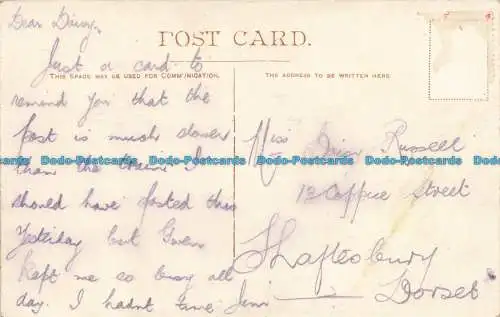 Dear Daisy,
POST CARD.
THIS SPACE MAY BE USED FOR COMMUNICATION.
THE ADDRESS TO BE WRITTEN HERE.
Just a card to
remind you that the
post is much slower
than the train I
should have posted this
Yesterday but Gwen
kept me so busy all
day. I hadnt time Jim
Miss Daisy Russell
13 Coppice Street
Shaftesbury
Dorset
Dodo-Postcards Dodo-Postcards Dodo-Postcards Dodo-Postcards Dodo-Postcards